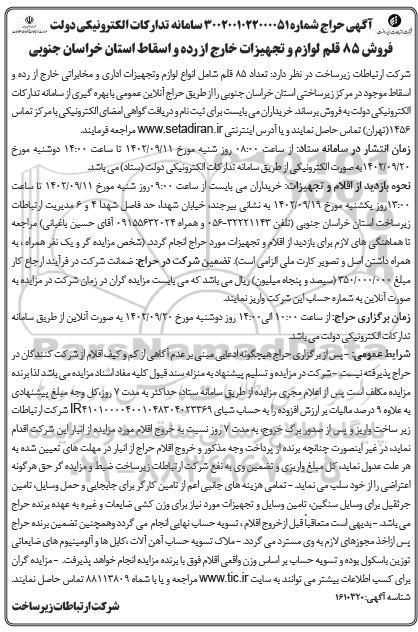 آگهی حراج شماره ۳۰۰۲۰۰۱۰۲۲۰۰۰۰۵۱ سامانه تدارکات الکترونیکی دولت
فروش ۸۵ قلم لوازم و تجهیزات خارج از رده و اسقاط استان خراسان جنوبی
شرکت ارتباطات زیرساخت در نظر دارد: تعداد ۸۵ قلم شامل انواع لوازم وتجهیزات اداری و مخابراتی خارج از رده و
اسقاط موجود در مرکز زیرساختی استان خراسان جنوبی را از طریق حراج آنلاین عمومی با بهره گیری از سامانه تدارکات
الکترونیکی دولت به فروش برساند. خریداران می بایست برای ثبت نام و دریافت گواهی امضای الکترونیکی با مرکز تماس
۱۴۵۶ (تهران) تماس حاصل نمایند و یا آدرس اینترنتی www.setadiran.ir مراجعه فرمایند.
زمان انتشار در سامانه ستاد: از ساعت ۰۸:۰۰ روز شنبه مورخ ۱۴۰۲/۰۹/۱۱ تا ساعت ۱۴:۰۰ دوشنبه مورخ
۱۴۰۲/۰۹/۲۰ به صورت الکترونیکی از طریق سامانه تدارکات الکترونیکی دولت (ستاد) می باشد.
نحوه بازدید از اقلام و تجهیزات: خریداران می بایست از ساعت ۰۹:۰۰ روز شنبه مورخ ۱۴۰۲/۰۹/۱۱ تا ساعت
۱۳:۰۰ روز یکشنبه مورخ ۱۴۰۲/۰۹/۱۹ به نشانی بیرجند، خیابان شهدا، حد فاصل شهدا ۴ و ۶ مدیریت ارتباطات
زیرساخت استان خراسان جنوبی (تلفن ۳۲۲۲۱۱۴۳-۰۵۶ و همراه ۰۹۱۵۵۶۳۲۰۲۴ آقای حسین باغبانی) مراجعه
تا هماهنگی های لازم برای بازدید از اقلام و تجهیزات مورد حراج انجام گردد. (شخص مزایده گر و یک نفر همراه ، به
همراه داشتن اصل و تصویر کارت ملی الزامی است). تضمین شرکت در حراج: ضمانت شرکت در فرآیند ارجاع کار
مبلغ ۳۵۰/۰۰۰/۰۰۰ (سیصد و پنجاه میلیون) ریال می باشد که می بایست مزایده گران در زمان شرکت در مزایده به
صورت آنلاین به شماره حساب این شرکت واریز نمایند.
زمان برگزاری حراج: از ساعت ۱۰:۰۰ الی ۱۴:۰۰ روز دوشنبه مورخ ۱۴۰۲/۰۹/۲۰ به صورت آنلاین از طریق سامانه
تدارکات الکترونیکی دولت می باشد.
شرایط عمومی: - پس از برگزاری حراج هیچگونه ادعایی مبنی بر عدم آگاهی از کم و کیف اقلام از شرکت کنندگان در
حراج پذیرفته نیست - شرکت در مزایده و تسلیم پیشنهاد به منزله سند قبول کلیه مفاد اسناد مزایده می باشد لذا برنده
مزایده مکلف است پس از اعلام مجری مزایده از طریق سامانه ستاد، حداکثر به مدت ۷ روز، کل وجه مبلغ پیشنهادی
به علاوه ۹ درصد مالیات بر ارزش افزوده را به حساب شبای IR۴۱۰۱۰۰۰۰۴۰۰۱۰۴۸۳۰۴۰۲۳۳۶۹ شرکت ارتباطات
زیر ساخت واریز و پس از صدور برگ خروج، به مدت ۷ روز نسبت به خروج اقلام مورد مزایده از انبار این شرکت اقدام
نماید، در غیر اینصورت چنانچه برنده از پرداخت وجه مذکور و خروج اقلام حراج از انبار در مهلت های تعیین شده به
هر علت عدول نماید، کل مبلغ واریزی و تضمین وی به نفع شرکت ارتباطات زیرساخت ضبط و مزایده گر حق هرگونه
اعتراضی را از خود سلب می نماید. - تمامی هزینه های جانبی اعم از تامین کارگر برای جابجایی و حمل وسایل، تامین
جرثقیل برای وسایل سنگین، تامین وسایل و تجهیزات مورد نیاز برای وزن کشی ضایعات و غیره به عهده برنده حراج
می باشد. - بدیهی است متعاقبا قبل از خروج اقلام ، تسویه حساب نهایی انجام می گردد وهمچنین تضمین برنده حراج
پس از اخذ مجوزهای لازم به وی مسترد می گردد. - ملاک تسویه حساب آهن آلات، کابل ها و آلومینیوم های ضایعاتی
توزین باسکول بوده و تسویه حساب بر اساس وزن واقعی اقلام فوق با برنده مزایده انجام خواهد پذیرفت. - مزایده گران
برای کسب اطلاعات بیشتر می توانند به سایت www.tic.ir مراجعه و یا با شماره ۸۸۱۱۳۸۰۹ تماس حاصل نمایند.
شناسه آگهی: ۱۶۱۰۳۲۰
شرکت ارتباطات زیرساخت